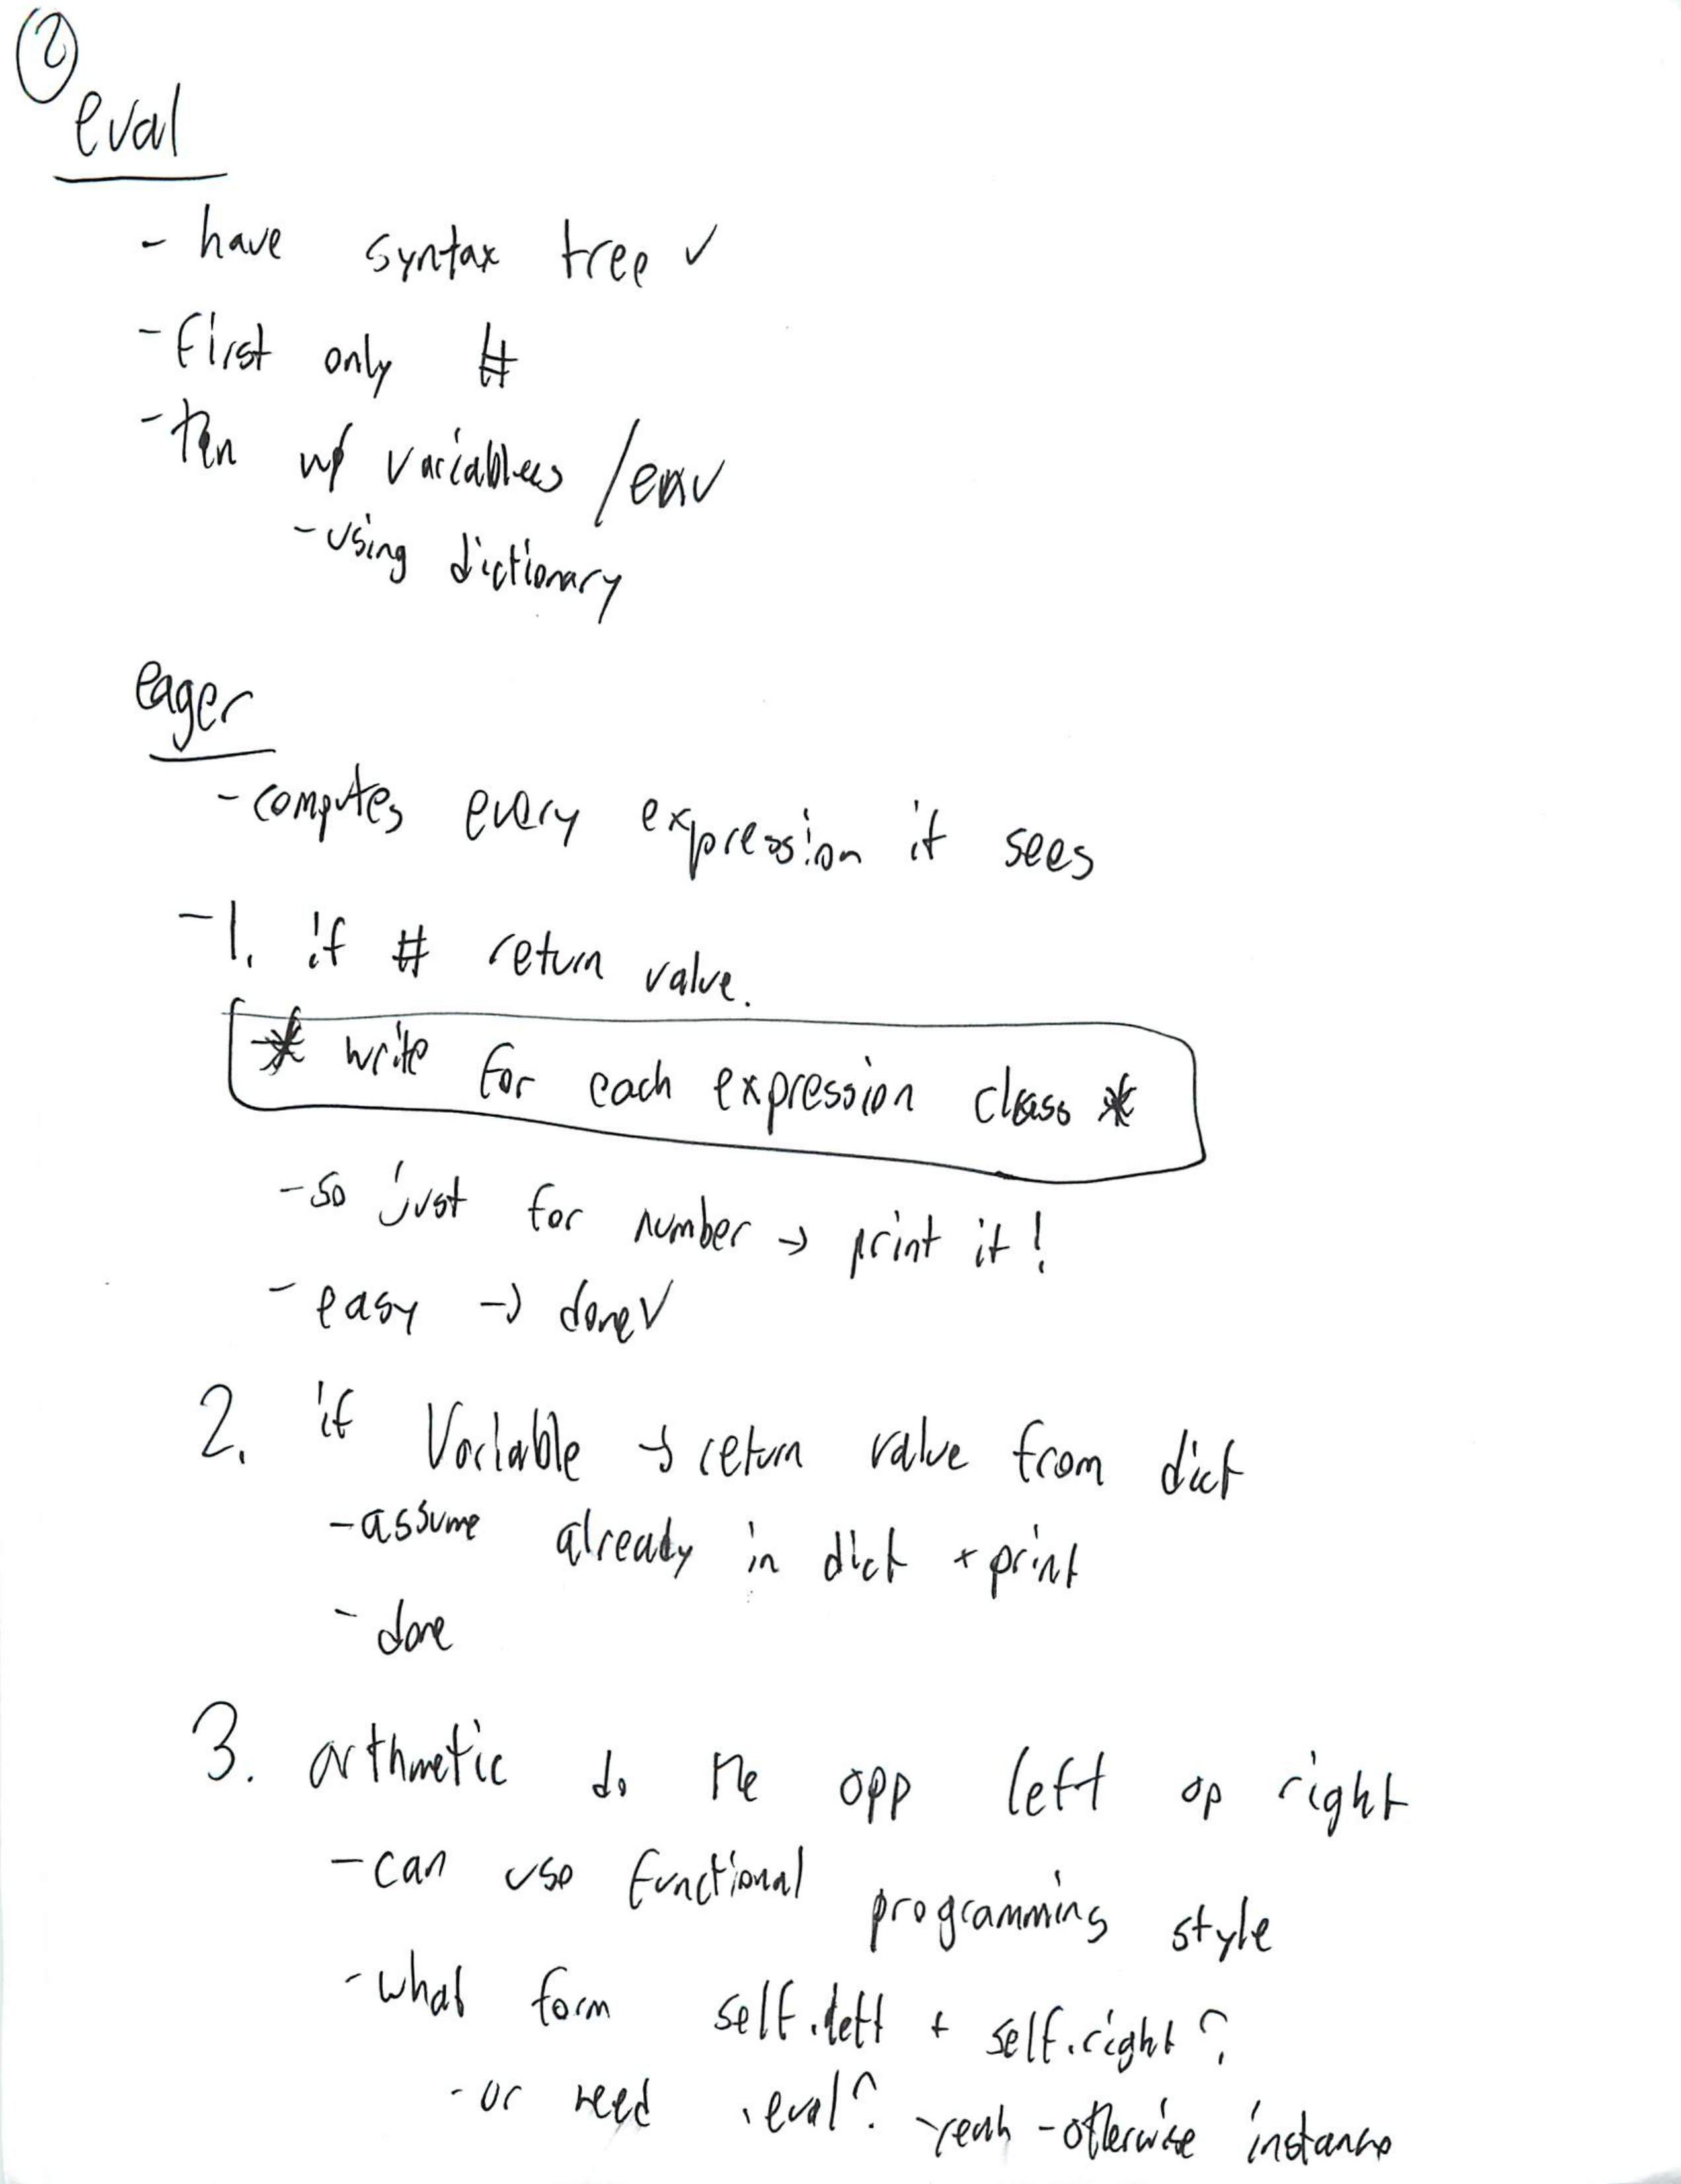 2
eval
- have syntax tree ✓
- First only #
- then w/ variables /env
- using dictionary
eager
- computes every expression it sees
- 1. if # return value.
* write for each expression class *
- so just for number → print it!
- easy → done ✓
2. if Variable → return value from dict
- assume already in dict + print
- done
3. arthmetic do the opp left op right
- can use functional programming style
- what form self.left + self.right?
- or need .eval? - yeah - otherwise instance